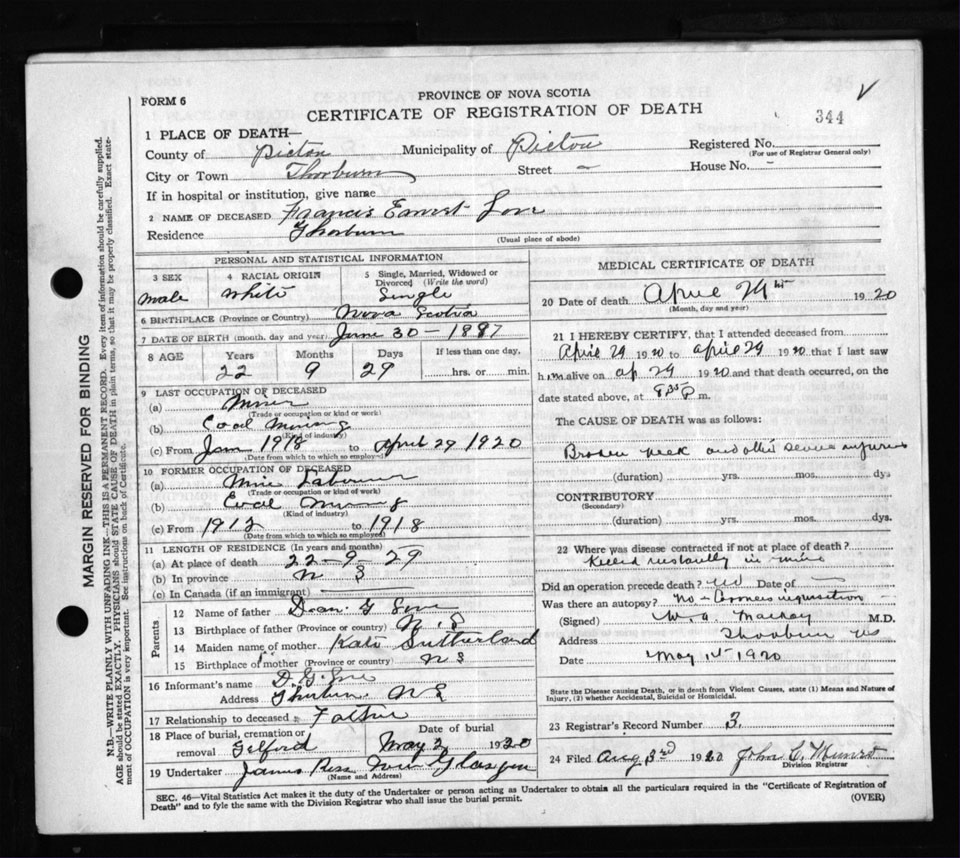 PROVINCE OF NOVA SCOTIA
FORM 6
CERTIFICATE OF REGISTRATION OF DEATH
344
1 PLACE OF DEATH—
County of Pictou Municipality of Pictou Registered No.
(For use of Registrar General only)
City or Town Thorburn Street — House No. -
If in hospital or institution, give name
2 NAME OF DECEASED Francis Ernest
Residence Thorburn
(Usual place of abode)
PERSONAL AND STATISTICAL INFORMATION
3 SEX 4 RACIAL ORIGIN 5 Single, Married, Widowed or Divorced (Write the word)
male White Single
6 BIRTHPLACE (Province or Country) Nova Scotia
7 DATE OF BIRTH (month, day and year) June 30 - 1897
8 AGE Years Months Days If less than one day,
22 9 29 hrs. or min.
9 LAST OCCUPATION OF DECEASED
(a) Miner
(Trade or occupation or kind or work)
(b) Coal Mining
(Kind of industry)
(c) From Jan 1918 to April 29 1920
(Date from which to which so employed)
10 FORMER OCCUPATION OF DECEASED
(a) Mine Labourer
(Trade or occupation or kind of work)
(b) Coal Mining
(Kind of industry)
(c) From 1912 to 1918
(Date from which to which so employed)
11 LENGTH OF RESIDENCE (In years and months)
(a) At place of death 22-9-29
(b) In province N S
(c) In Canada (if an immigrant)
Parents
12 Name of father G
13 Birthplace of father (Province or country) N.S
14 Maiden name of mother Kate Sutherland
15 Birthplace of mother (Province or country) N S
16 Informant's name D. G.
Address Thorburn N S
17 Relationship to deceased Father
18 Place of burial, cremation or Date of burial
removal May 2 1920
19 Undertaker James Ross New Glasgow
(Name and Address)
MEDICAL CERTIFICATE OF DEATH
20 Date of death April 29th 1920
(Month, day and year)
21 I HEREBY CERTIFY, that I attended deceased from
April 29 1920 to April 29 1920 that I last saw
him alive on ap 29 1920 and that death occurred, on the
date stated above, at P m.
The CAUSE OF DEATH was as follows:
Broken neck and other severe injuries
(duration) yrs. mos. dys
CONTRIBUTORY
(Secondary)
(duration) yrs. mos. dys.
22 Where was disease contracted if not at place of death?
Killed instantly in mine
Did an operation precede death? no Date of —
Was there an autopsy? No - Coroners inquisition
(Signed) W. A. Mackay M.D.
Address Thorburn NS
Date May 1st 1920
State the Disease causing Death, or in death from Violent Causes, state (1) Means and Nature of
Injury, (2) whether Accidental, Suicidal or Homicidal.
23 Registrar's Record Number 3
24 Filed Aug 3rd 1920 John C. Munro
Division Registrar
SEC. 46—Vital Statistics Act makes it the duty of the Undertaker or person acting as Undertaker to obtain all the particulars required in the "Certificate of Registration of
Death" and to fyle the same with the Division Registrar who shall issue the burial permit. (OVER)
MARGIN RESERVED FOR BINDING
N.B.—WRITE PLAINLY WITH UNFADING INK—THIS IS A PERMANENT RECORD. Every item of information should be carefully supplied.
AGE should be stated EXACTLY. PHYSICIANS should STATE CAUSE OF DEATH in plain terms, so that it may be properly classified. Exact state-
ment of OCCUPATION is very important. See instructions on back of Certificate.